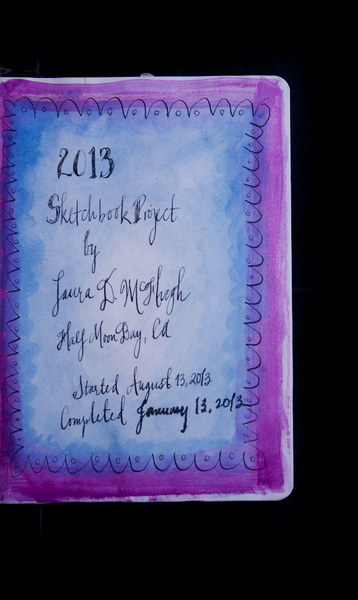 2013
Sketchbook Project
by
Laura D. McHugh
Half Moon Bay, Ca
Started August 13, 2013
Completed January 13, 2013